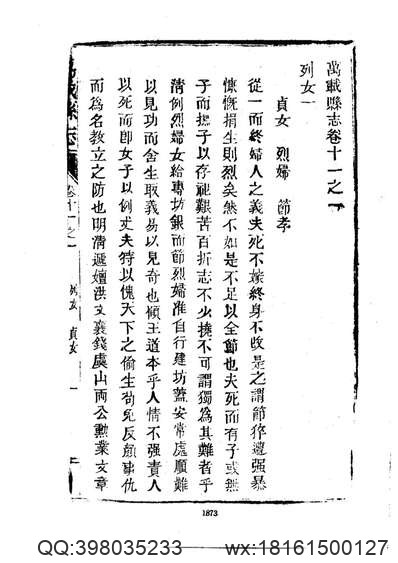 萬載縣志卷十一之一
列女一
貞女 烈婦 節孝
從一而終婦人之義夫死不嫁終身不改是之謂節猝遭强暴
慷慨捐生則烈矣然不如是不足以全節也夫死而有子或無
子而撫子以存祀艱苦百折志不少撓不可謂獨為其難者乎
清例烈婦女給專坊銀而節烈婦准自行建坊蓋安常處順難
以見功而舍生取義易以見奇也傾王道本乎人情不强責人
以死而即女子以例丈夫特以愧天下之偷生苟免反顏事仇
而為名教立之防也明清遞嬗洪文襄錢虞山兩公勲業文章
卷十一之一
列女 貞女
一
1873
QQ:398035233 wx:18161500127